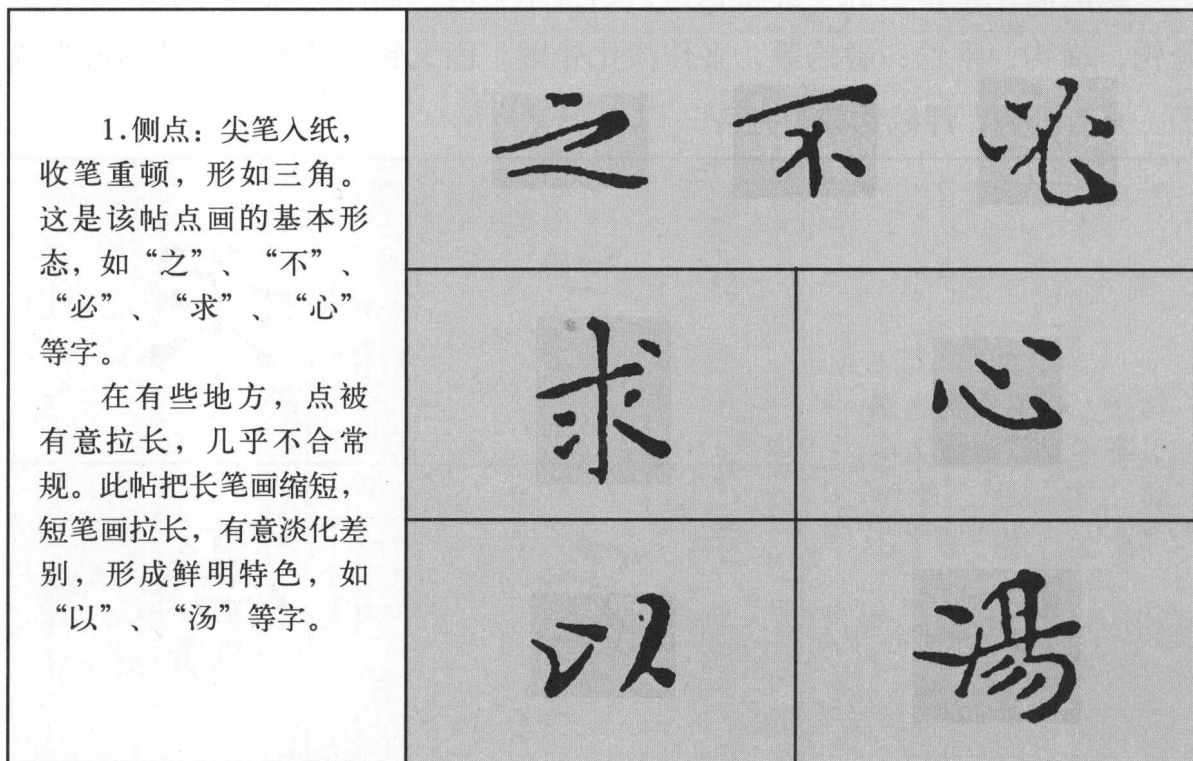 1.侧点：尖笔入纸，
收笔重顿，形如三角。
这是该帖点画的基本形
态，如“之”、“不”、
“必”、“求”、“心”
等字。
在有些地方，点被
有意拉长，几乎不合常
规。此帖把长笔画缩短，
短笔画拉长，有意淡化差
别，形成鲜明特色，如
“以”、“汤”等字。
之 不 必
求 心
以 湯